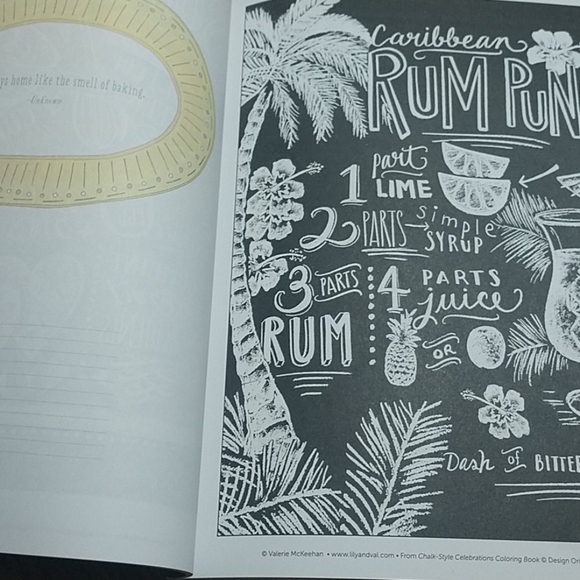 ys home like the smell of baking.
-Unknown
Caribbean
RUM PUN
1 part
LIME
2 PARTS simple
SYRUP
3 PARTS
RUM
4 PARTS
juice
OR
Dash of BITTE
© Valerie McKeehan • www.lilyandval.com • From Chalk-Style Celebrations Coloring Book © Design Or